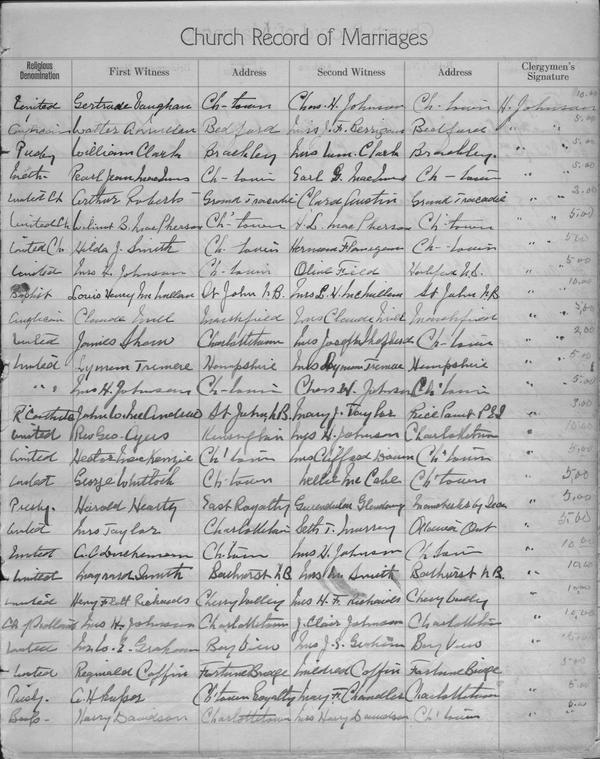 Church Record of Marriages
Religious Denomination First Witness Address Second Witness Address Clergymen's Signature
United Gertrude Vaughan Ch-town Chas. H. Johnson Ch-town H. Johnson 10.00
Walter Bedford Mrs J. F. Bedford " " 5.00
Presby William Clark Brackley Mrs Wm. Clark Brackley. " " 5.00
Pearl Ch-town Earl Ch-town " " 5.00
United Ch Arthur Roberts Grand Tracadie Clara Austin Grand Tracadie " " 2.00
United Ch. Wilmot B. MacPherson Ch'town H. L. MacPherson Ch'town " " 5.00
United Ch. Hilda J. Smith Ch-town Hermon Flanagan Ch-town " " 5.00
United Mrs H. Johnson Ch-town Olive Field " " 5.00
Baptist Louis Henry McMullen St John N.B. Mrs L. H. McMullen St John N.B " " 10.00
Anglican Claude Mrs Claude " "
United James Charlottetown Mrs Joseph Shepherd Ch-town " " 2.00
United Lyman Tremere Hampshire Mrs Lyman Tremere Hampshire " " 5.00
" " Mrs H. Johnson Ch-town Chas H. Johnson Ch'town " 5.00
R Catholic John St John N.B. Mary J. Taylor P.E.I "
United Rev Geo. Ayers Kensington Mrs H. Johnson Charlottetown " 10.00
United Hector MacKenzie Ch'town Mrs Clifford Ch'town " 5.00
United George Whitlock Ch'town Nellie McCabe Ch'town " 5.00
Presby. Harold Hearty East Royalty Gwendolen " 5.00
United Mrs Taylor Charlottetown Seth T. Murray Ottawa Ont " 5.00
United Ch'town Mrs H. Johnson Ch'town " 10.00
United Maynard Smith Bathurst N.B. Mrs M. Smith Bathurst N.B. " 10.00
United Henry Flett Richards Cherry Valley Mrs H. F. Richards Cherry Valley "
Mrs H. Johnson Charlottetown J. Clair Johnson Charlottetown " 10.00
United E. Graham Bay View Mrs J. S. Graham Bay View "
United Reginald Coffin Fortune Bridge Mildred Coffin Fortune Bridge " 5.00
Presby. Ch'town Royalty Mary F. Chandler Charlottetown " 5.00
Harry Davidson Charlottetown Mrs Harry Davidson Ch'town " 5.00